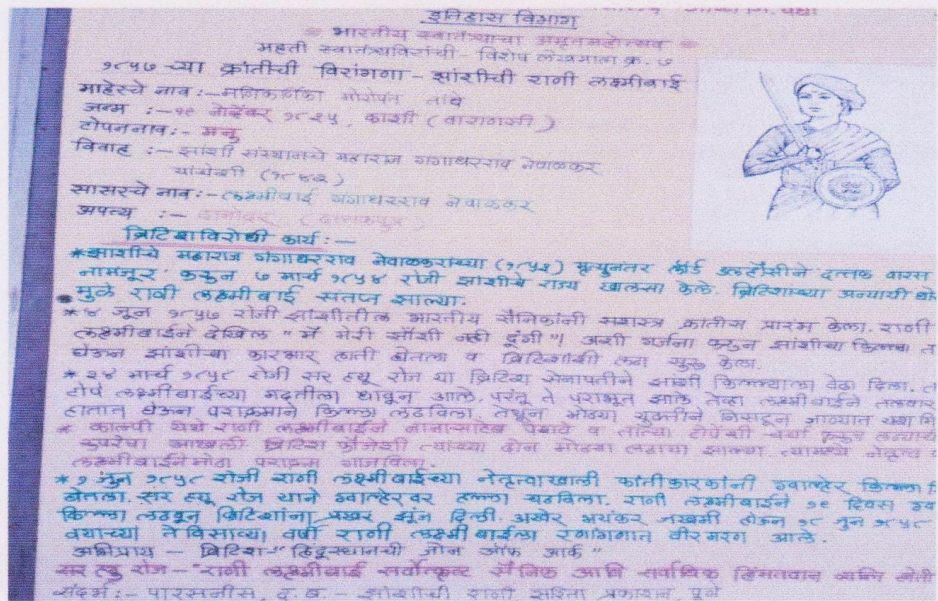 इतिहास विभाग
* भारतीय स्वातंत्र्याचा अमृतमहोत्सव *
महती स्वातंत्र्यविरांची - विशेष लेखमाला क्र. ७
१८५७ च्या क्रांतीची विरांगणा - झांशीची राणी लक्ष्मीबाई
माहेरचे नाव :- मनिकर्णिका मोरोपंत तांबे
जन्म :- १९ नोव्हेंबर १८३५, काशी (वाराणसी)
टोपननाव :- मनु
विवाह :- झांशी संस्थानचे महाराज गंगाधरराव नेवाळकर
यांचेशी (१८४२)
सासरचे नाव :- लक्ष्मीबाई गंगाधरराव नेवाळकर
अपत्य :- दामोदर (दत्तकपुत्र)
ब्रिटिशविरोधी कार्य :-
* झाशीचे महाराज गंगाधरराव नेवाळकरांच्या (१८५३) मृत्युनंतर लॉर्ड डलहौसीने दत्तक वारस
नामंजूर करून ७ मार्च १८५४ रोजी झांशीचे राज्य खालसा केले. ब्रिटिशांच्या अन्यायी
मुळे राणी लक्ष्मीबाई संतप्त झाल्या.
* ४ जून १८५७ रोजी झांशीतील भारतीय सैनिकांनी सशस्त्र क्रांतीस प्रारंभ केला. राणी
लक्ष्मीबाईने देखिल "मैं मेरी झाँशी नही दूंगी"। अशी गर्जना करून झांशीच्या किल्ला
घेऊन झांशीचा कारभार हाती घेतला व ब्रिटिशांशी लढा सुरू केला.
* २४ मार्च १८५८ रोजी सर ह्यू रोज या ब्रिटिश सेनापतीने झांशी किल्ल्याला वेढा दिला.
टोपे लक्ष्मीबाईच्या मदतीला धावून आले. परंतू ते पराभूत झाले तेंव्हा लक्ष्मीबाईने तलवार
हातात घेऊन पराक्रमाने किल्ला लढविला. तेथून मोठ्या युक्तीने निसटून
* काल्पी येथे राणी लक्ष्मीबाईने नानासाहेब पेशवे व तात्या टोपेंशी चर्चा करून लढ्याची
रुपरेषा आखली ब्रिटिश फौजेशी त्यांच्या दोन मोठ्या लढाया झाल्या. त्यामध्ये नेतृत्व
लक्ष्मीबाईने मोठा पराक्रम गाजविला.
* १ जून १८५८ रोजी राणी लक्ष्मीबाईच्या नेतृत्वाखाली क्रांतीकारकांनी ग्वाल्हेर किल्ला
घेतला. सर ह्यू रोज याने ग्वाल्हेरवर हल्ला चढविला. राणी लक्ष्मीबाईने १९ दिवस
किल्ला लढवून ब्रिटिशांना प्रखर झुंज दिली. अखेर भयंकर जखमी होऊन १८ जुन १८५८
वयाच्या तेविसाव्या वर्षी राणी लक्ष्मीबाईला रणांगणात वीरमरण आले.
अभिप्राय - ब्रिटिश - "हिंदुस्थानची जोन ऑफ आर्क"
सर ह्यु रोज - "राणी लक्ष्मीबाई सर्वोत्कृष्ट सैनिक आणि सर्वाधिक हिंमतवान व्यक्ति
संदर्भ :- पारसनीस, द. ब. - झांशीची राणी सरिता प्रकाशन, पूणे